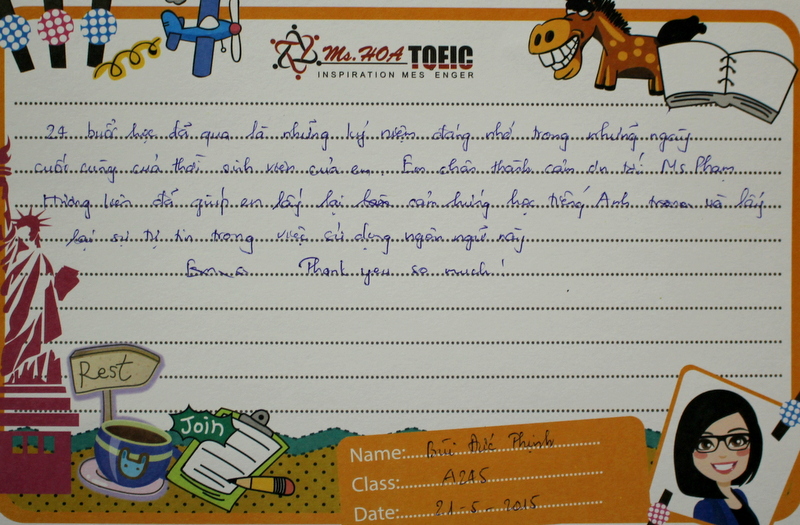 Ms.HOA TOEIC
INSPIRATION MES ENGER
24 buổi học đã qua là những kỷ niệm đáng nhớ trong những ngày
cuối cùng của thời sinh viên của em. Em chân thành cảm ơn Ms. Phạm
Hương Liên đã giúp em lấy lại cảm hứng học tiếng Anh và lấy
lại sự tự tin trong việc sử dụng ngôn ngữ này
Thank you so much!
Rest
Join
Name: Bùi Đức Thịnh
Class: A245
Date: 21-5-2015